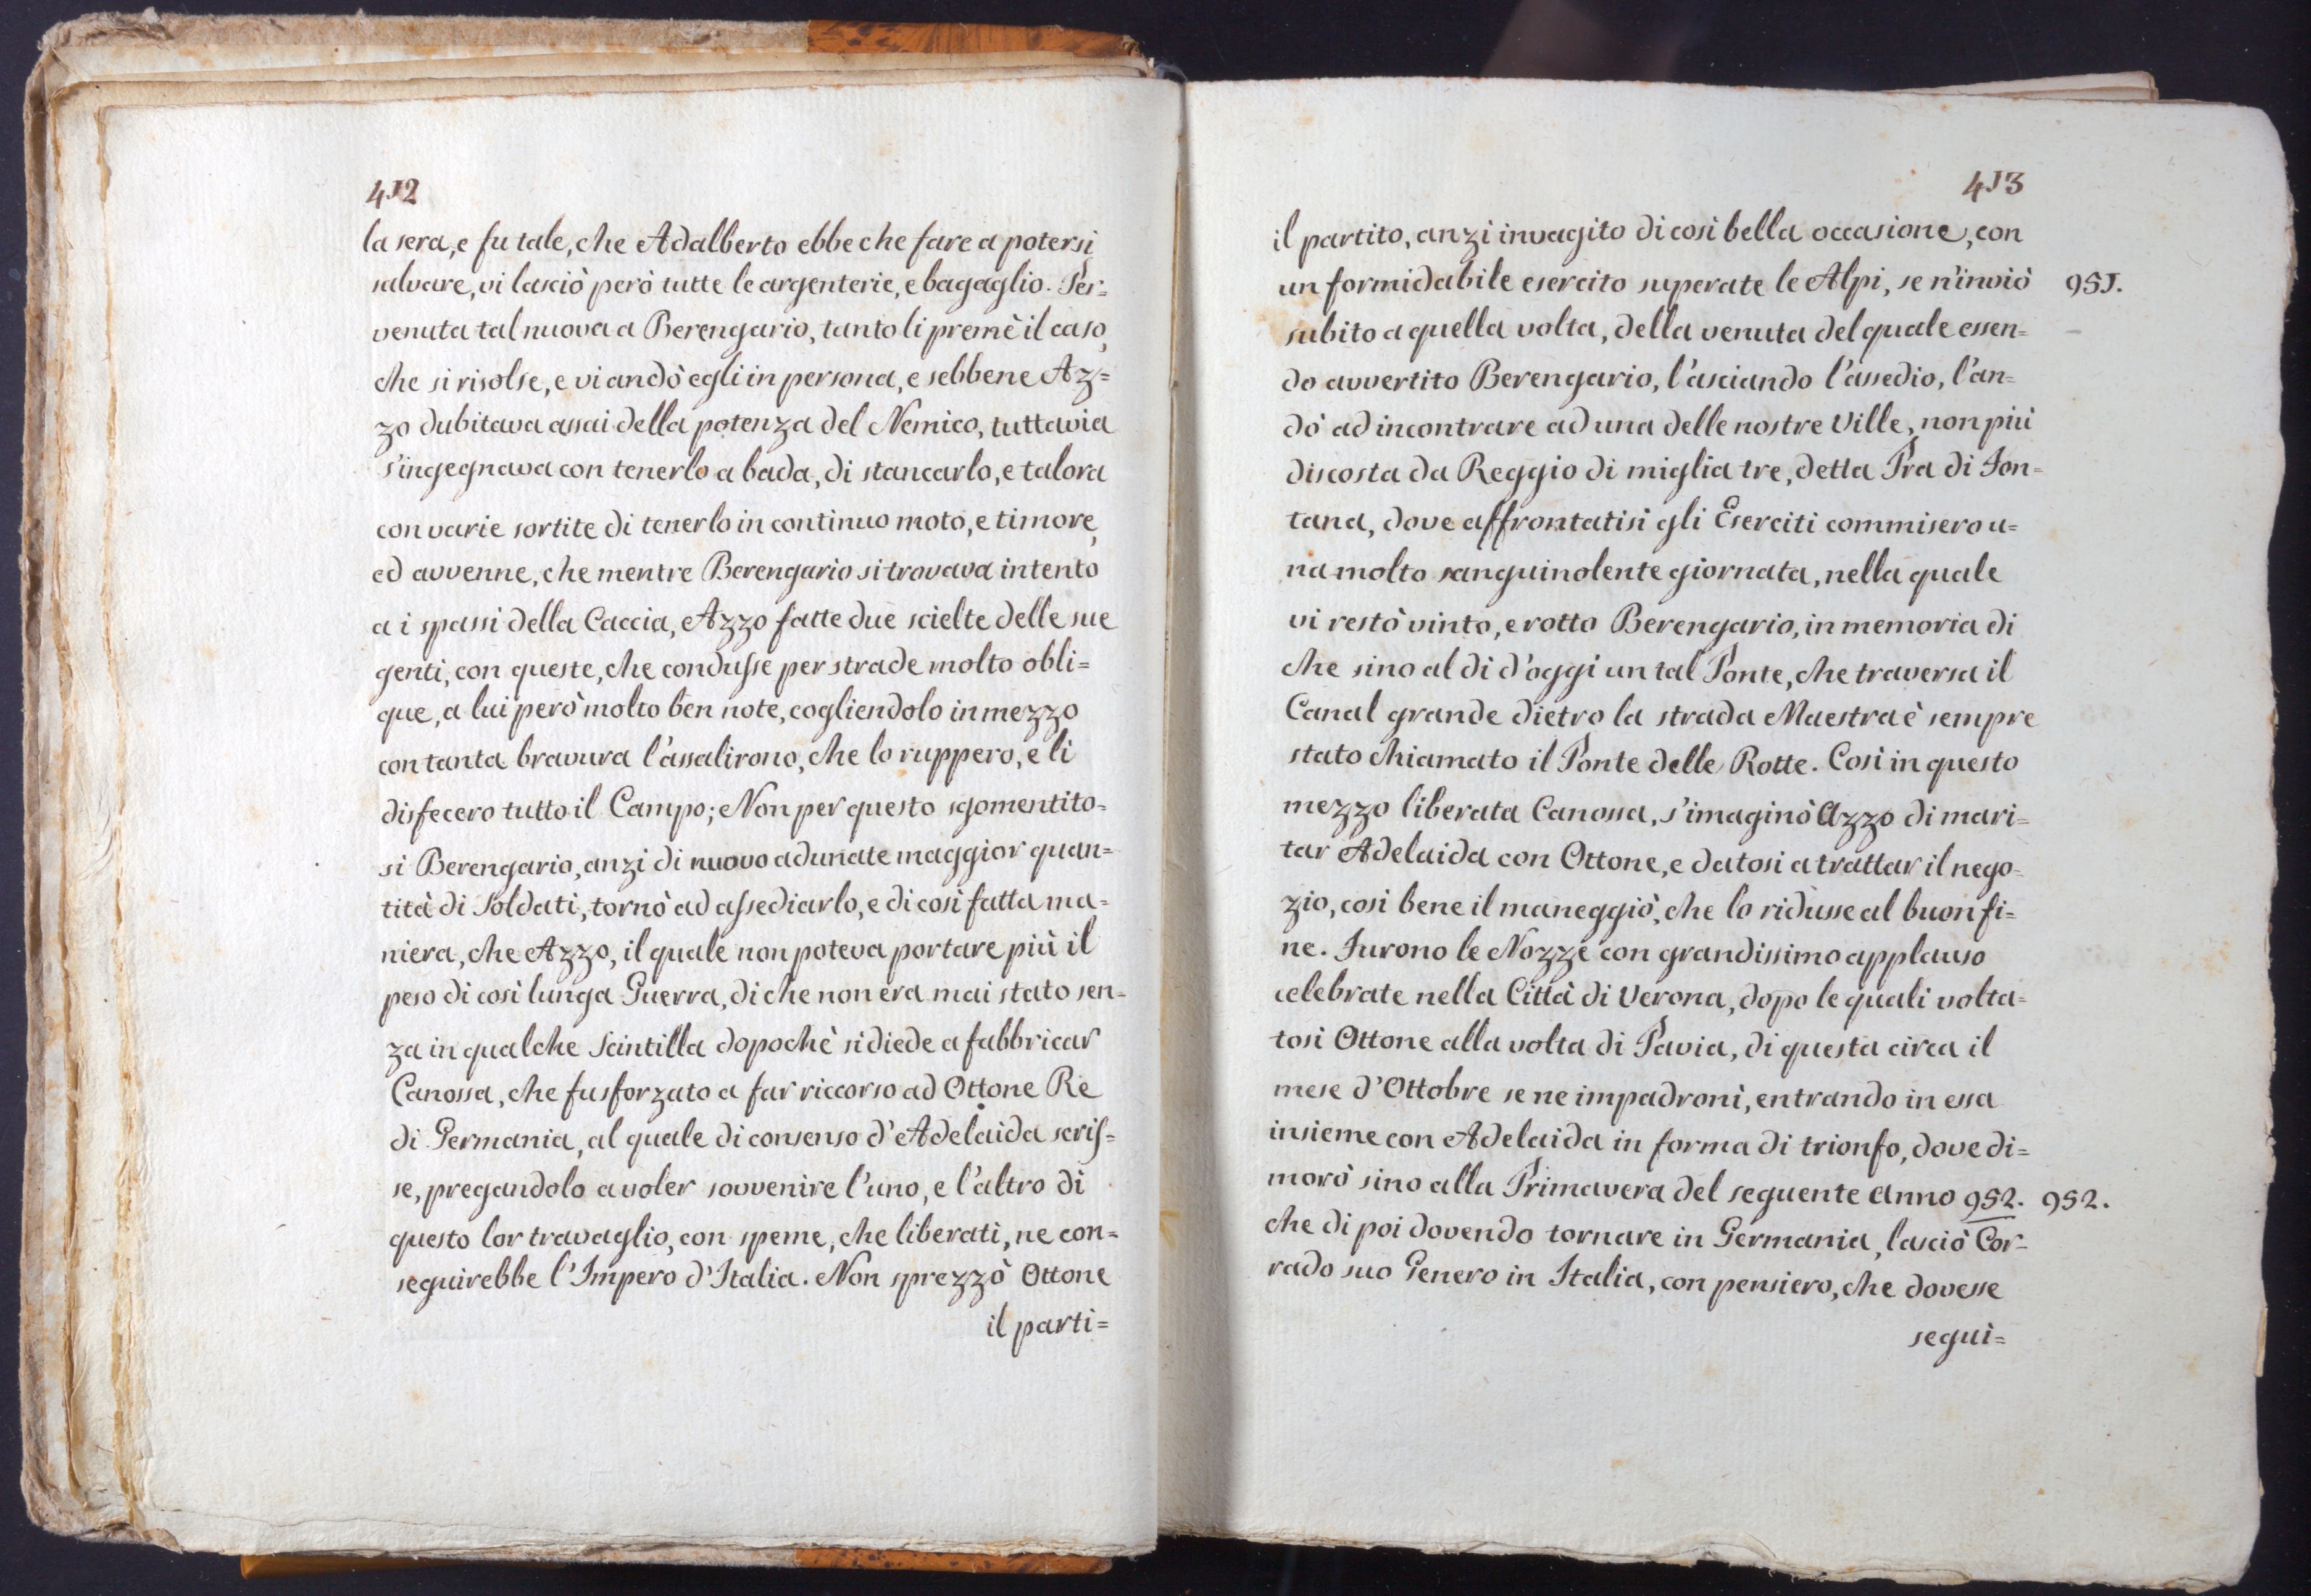 412
la sera, e fu tale, che Adalberto ebbe che fare a potersi
salvare, vi lasciò però tutte le argenterie, e bagaglio. Per=
venuta tal nuova a Berengario, tanto li premè il caso,
che si risolse, e vi andò egli in persona, e sebbene Az=
zo dubitava assai della potenza del Nemico, tuttavia
s'ingegnava con tenerlo a bada, di stancarlo, e talora
con varie sortite di tenerlo in continuo moto, e timore,
ed avvenne, che mentre Berengario si trovava intento
a i spassi della Caccia, Azzo fatte due scielte delle sue
genti, con queste, che condusse per strade molto obli=
que, a lui però molto ben note, cogliendolo in mezzo
con tanta bravura l'assalirono, che lo ruppero, e li
disfecero tutto il Campo; Non per questo sgomentito=
si Berengario, anzi di nuovo adunate maggior quan=
tità di Soldati, tornò ad assediarlo, e di così fatta ma=
niera, che Azzo, il quale non poteva portare più il
peso di così lunga Guerra, di che non era mai stato sen=
za in qualche Scintilla dopochè si diede a fabbricar
Canossa, che fu sforzato a far riccorso ad Ottone Re
di Germania, al quale di consenso d'Adelaida scris=
se, pregandolo a voler sovvenire l'uno, e l'altro di
questo lor travaglio, con speme, che liberati, ne con=
seguirebbe l'Impero d'Italia. Non sprezzò Ottone
il parti=
413
il partito, anzi invagito di così bella occasione, con
un formidabile esercito superate le Alpi, se n'inviò 951.
subito a quella volta, della venuta del quale essen=
do avvertito Berengario, l'asciando l'assedio, l'an=
dò ad incontrare ad una delle nostre Ville, non più
discosta da Reggio di miglia tre, detta Pra di Fon=
tana, dove affrontatisi gli Eserciti commisero u=
na molto sanguinolente giornata, nella quale
vi restò vinto, e rotto Berengario, in memoria di
che sino al di d'oggi un tal Ponte, che traversa il
Canal grande dietro la strada Maestra è sempre
stato chiamato il Ponte delle Rotte. Così in questo
mezzo liberata Canossa, s'imaginò Azzo di mari=
tar Adelaida con Ottone, e datosi a trattar il nego=
zio, così bene il maneggiò, che lo ridusse al buon fi=
ne. Furono le Nozze con grandissimo applauso
celebrate nella Città di Verona, dopo le quali volta=
tosi Ottone alla volta di Pavia, di questa circa il
mese d'Ottobre se ne impadronì, entrando in essa
insieme con Adelaida in forma di trionfo, dove di=
morò sino alla Primavera del seguente Anno 952. 952.
che di poi dovendo tornare in Germania, lasciò Cor=
rado suo Genero in Italia, con pensiero, che dovesse
segui=